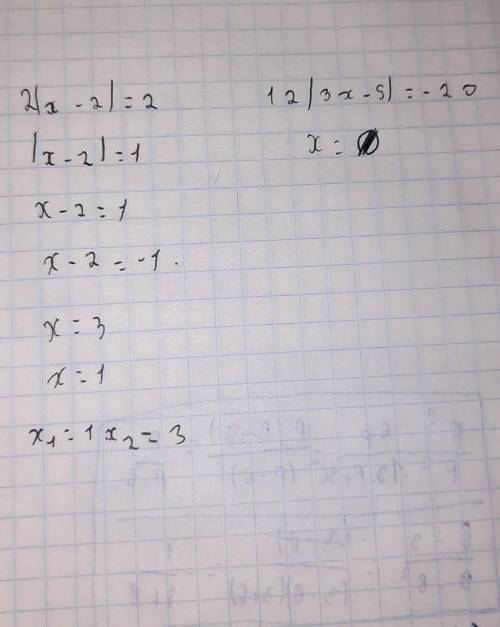 2|x - 2| = 2
|x - 2| = 1
x - 2 = 1
x - 2 = -1.
x = 3
x = 1
x₁ = 1 x₂ = 3
12|3x - 5| = -20
x = ∅